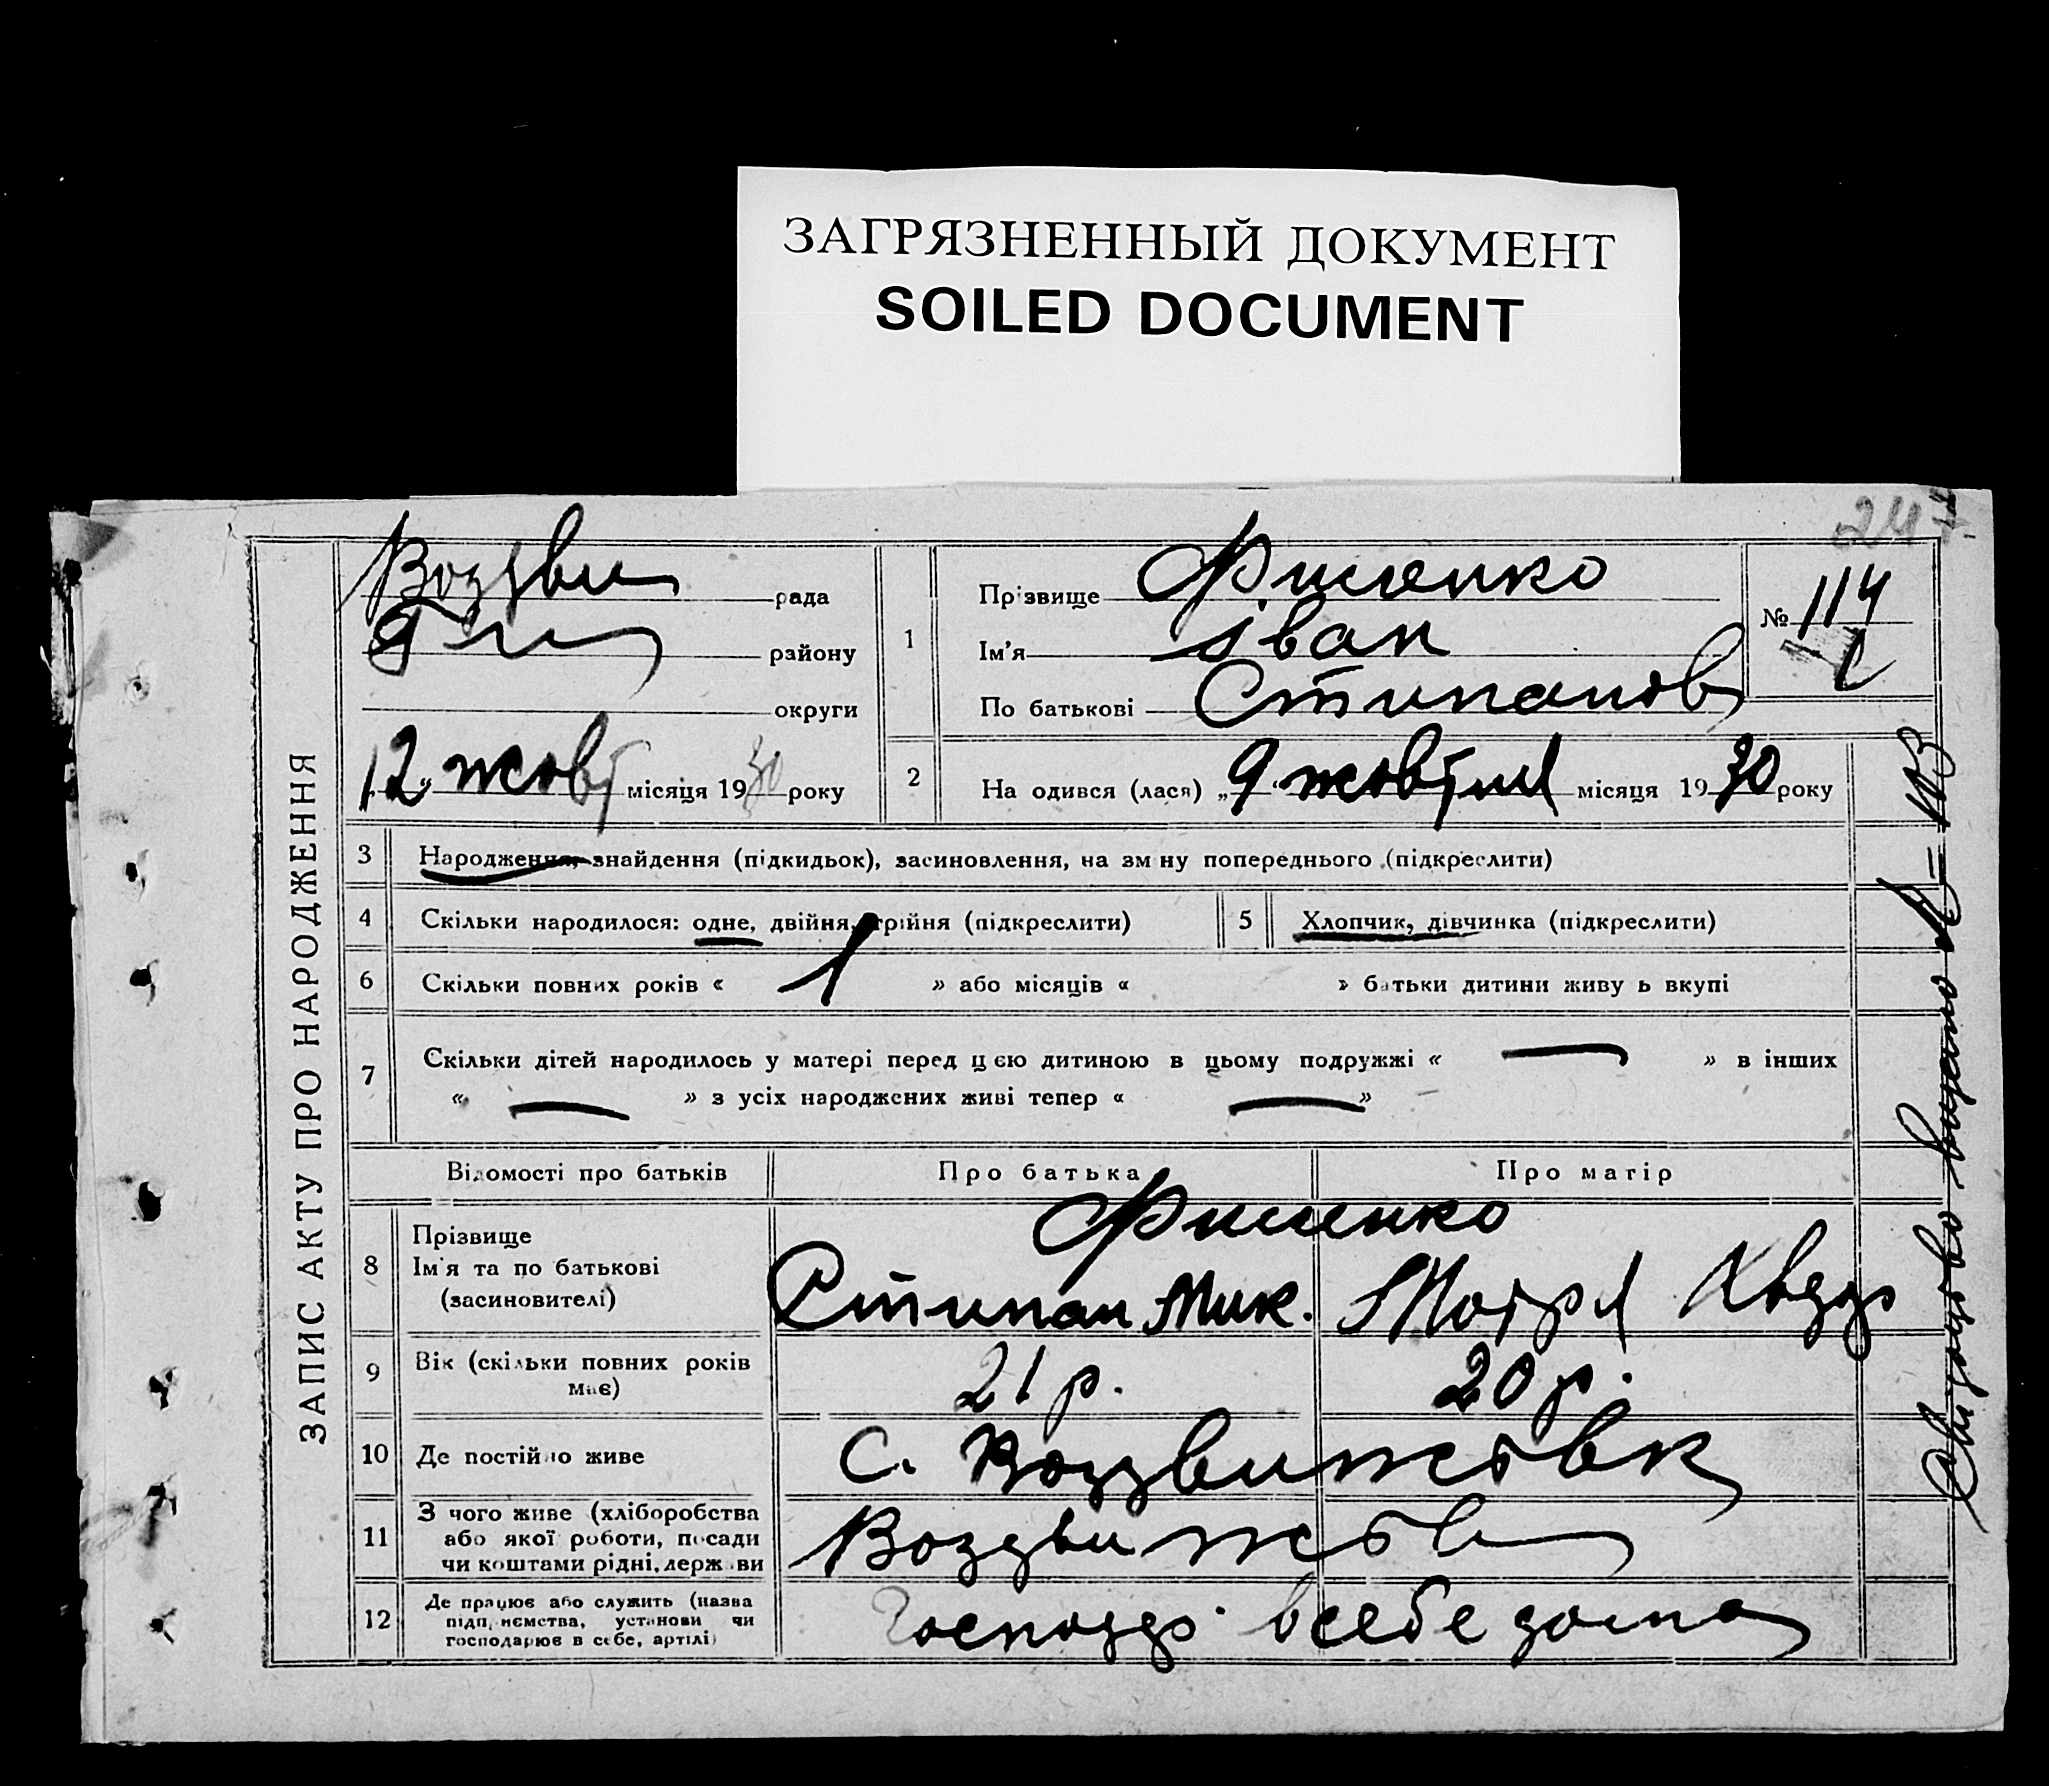 ЗАГРЯЗНЕННЫЙ ДОКУМЕНТ
SOILED DOCUMENT
ЗАПИС АКТУ ПРО НАРОДЖЕННЯ
Воздви рада
району
округи
12 жовт місяця 1930 року
1
Прізвище Фисенко
Ім'я Іван
По батькові Степанов
№ 114
2 На одився (лася) „9" жовтня місяця 1930 року
3 Народження, знайдення (підкидьок), засиновлення, на зм ну попереднього (підкреслити)
4 Скільки народилося: одне, двійня, трійня (підкреслити)
5 Хлопчик, дівчинка (підкреслити)
6 Скільки повних років « 1 » або місяців « » батьки дитини живу ь вкупі
7 Скільки дітей народилось у матері перед цєю дитиною в цьому подружжі « — » в інших
« — » з усіх народжених живі тепер « — »
Відомості про батьків Про батька Про матір
8 Прізвище
Ім'я та по батькові
(засиновителі)
Фисенко
Степан Мик. Мотря
9 Вік (скільки повних років має)
21 р. 20 р.
10 Де постійно живе
с. Воздвижівк
11 З чого живе (хліборобства
або якої роботи, посади
чи коштами рідні, держави
Воздвижів
12 Де працює або служить (назва
підприємства, установи чи
господарює в себе, артілі)
в себе дома
Свидоцтво видано